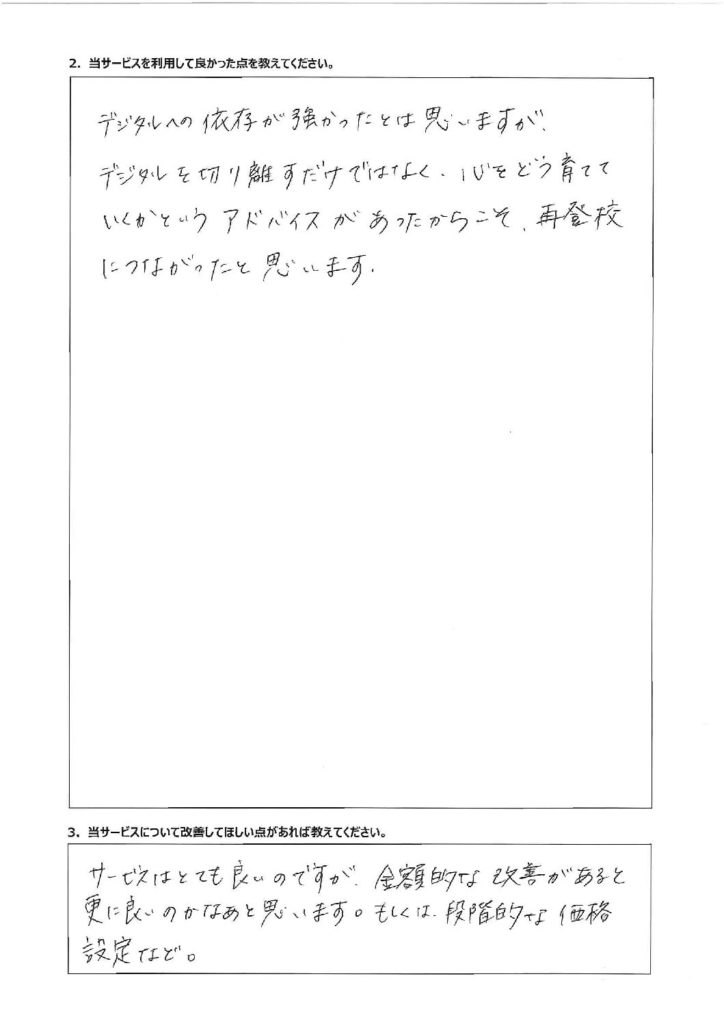 2. 当サービスを利用して良かった点を教えてください。
デジタルへの依存が強かったとは思いますが、
デジタルを切り離すだけではなく、心をどう育てて
いくかという アドバイスがあったからこそ、再登校
につながったと思います.
3. 当サービスについて改善してほしい点があれば教えてください。
サービスはとても良いのですが、金額的な改善があると
更に良いのかなあと思います。もしくは、段階的な価格
設定など。